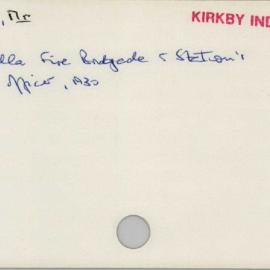 , Mr
KIRKBY IND
lla Fire Brigade & Station's
Officer, A30